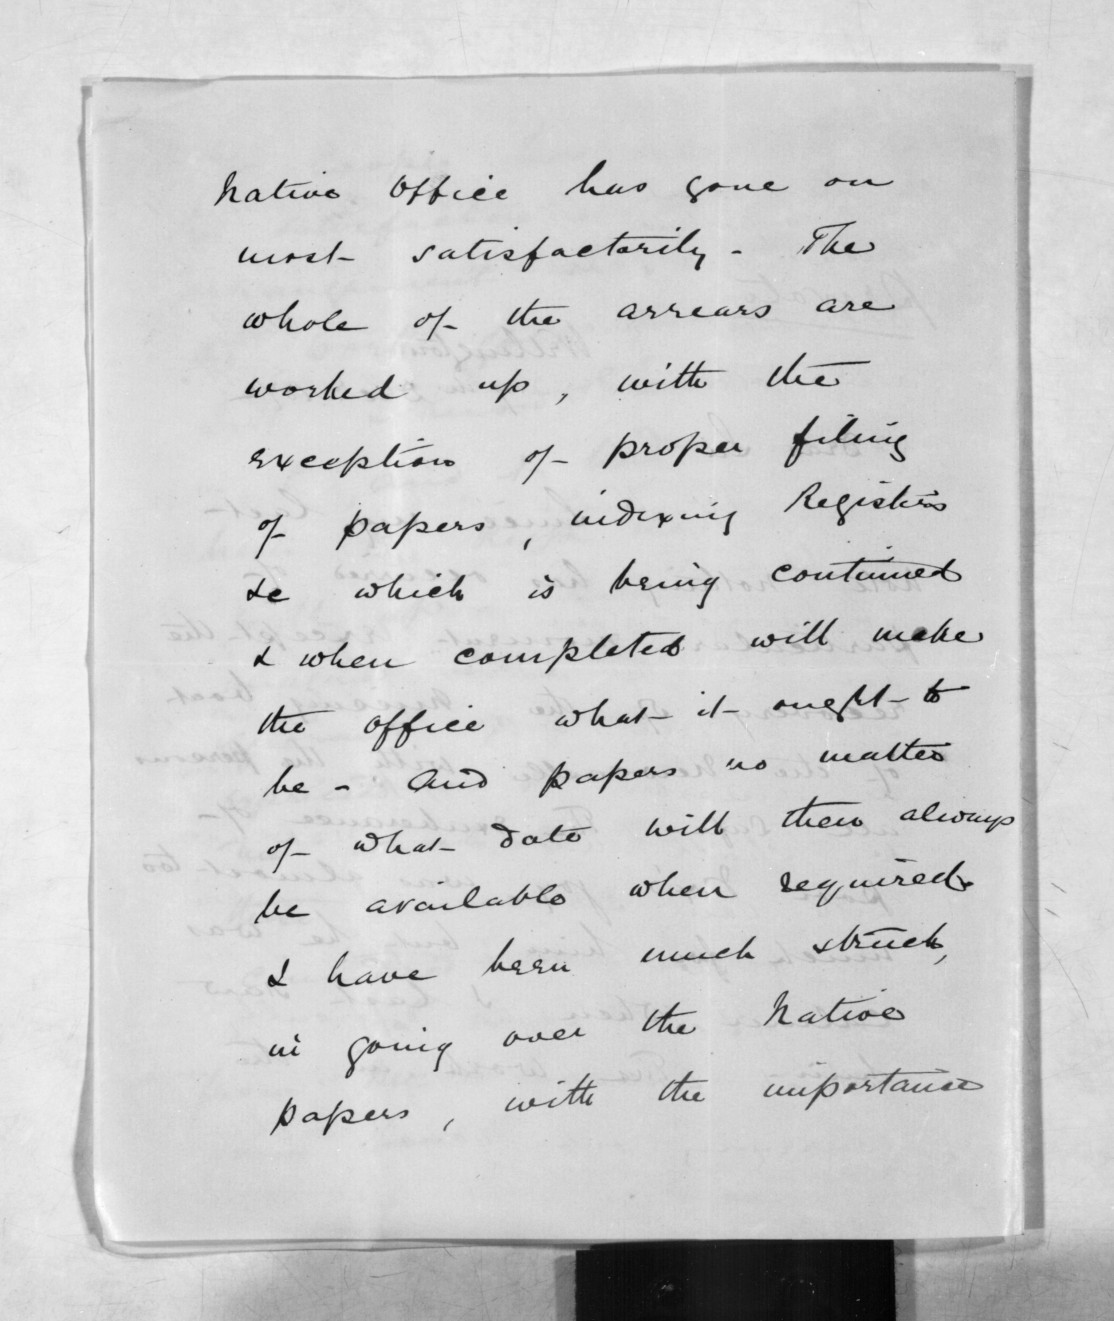 Native Office has gone on
most satisfactorily - The
whole of the arrears are
worked up, with the
exception of proper filing
of papers, indexing Registers
&c which is being continued
& when completed will make
the office what it ought to
be - And papers no matter
of what date will then always
be available when required.
I have been much struck,
in going over the Native
papers, with the importance